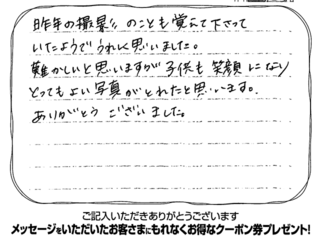 昨年の撮影のことも覚えて下さって
いたようでうれしく思いました。
難かしいと思いますが子供も笑顔になり
とってもよい写真がとれたと思います。
ありがとうございました。
ご記入いただきありがとうございます
メッセージをいただいたお客さまにもれなくお得なクーポン券プレゼント!